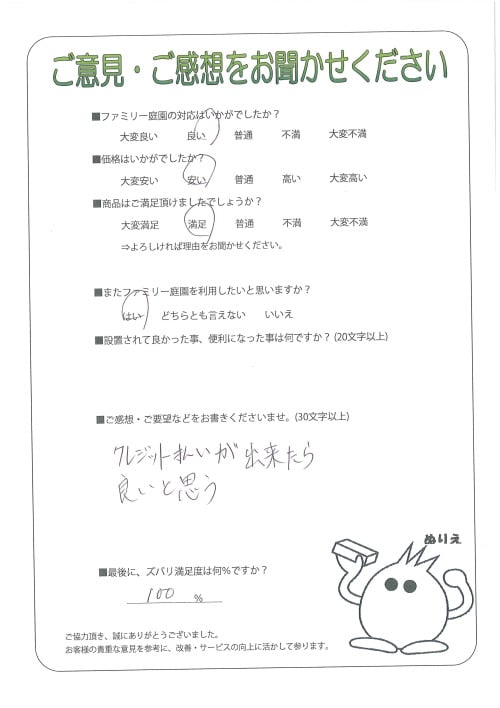 ご意見・ご感想をお聞かせください
■ファミリー庭園の対応はいかがでしたか？
大変良い 良い 普通 不満 大変不満
■価格はいかがでしたか？
大変安い 安い 普通 高い 大変高い
■商品はご満足頂けましたでしょうか？
大変満足 満足 普通 不満 大変不満
⇒よろしければ理由をお聞かせください。
■またファミリー庭園を利用したいと思いますか？
はい どちらとも言えない いいえ
■設置されて良かった事、便利になった事は何ですか？(20文字以上)
■ご感想・ご要望などをお書きくださいませ。(30文字以上)
クレジット払いが出来たら
良いと思う
ぬりえ
■最後に、ズバリ満足度は何%ですか？
100 %
ご協力頂き、誠にありがとうございました。
お客様の貴重な意見を参考に、改善・サービスの向上に活かして参ります。